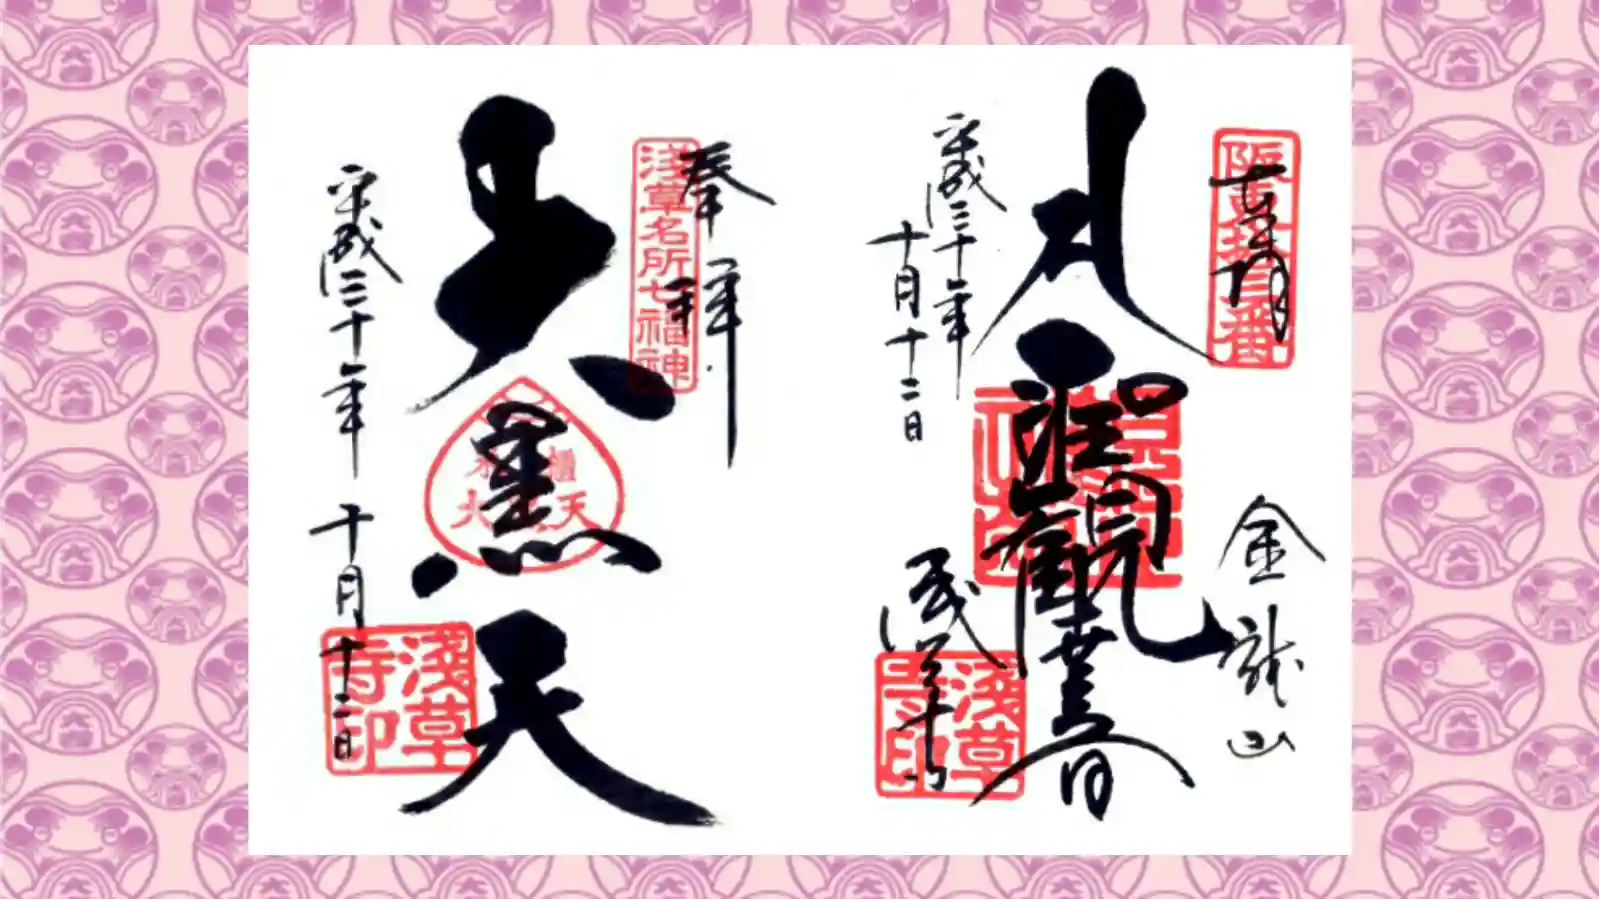 奉拝
浅草名所七福神
大黒天
大 天
平成三十年 十月十二日
浅草
寺印
奉拝
阪東拾三番
金龍山
聖観世音
平成三十年
十月十二日
浅草寺
浅草
寺印